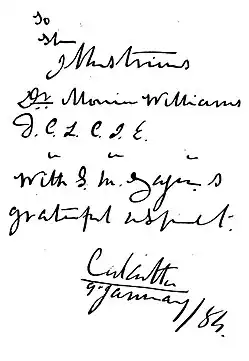 To
the
Illustrious
Dr. Monier Williams
D. C. L. C. I. E.
" " "
With S. M. Tagore's
grateful respect.
Calcutta
9 January/84.